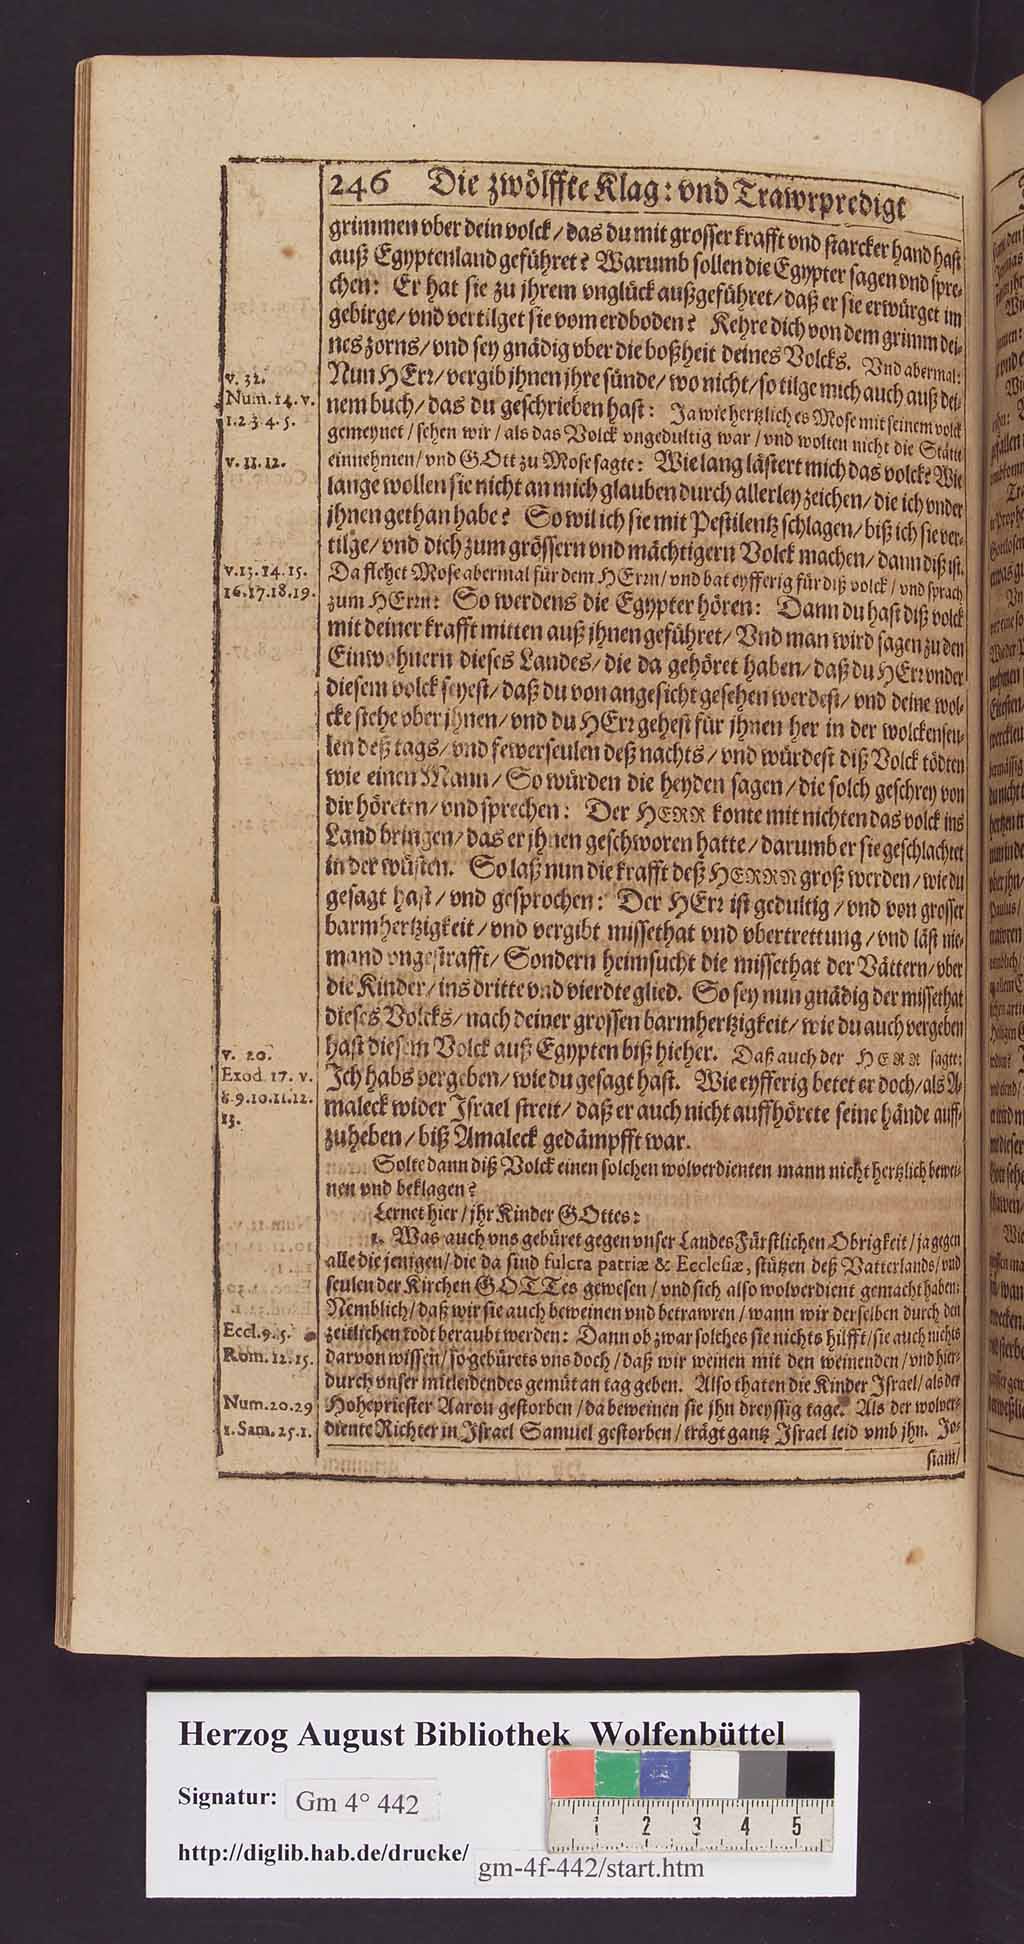 246 Die zwölffte Klag: vnd Trawrpredigt
grimmen vber dein volck / das du mit grosser krafft vnd starcker hand hast
auß Egyptenland geführet? Warumb sollen die Egypter sagen vnd spre-
chen: Er hat sie zu jhrem vnglück außgeführet / daß er sie erwürget im
gebirge / vnd vertilget sie vom erdboden? Kehre dich von dem grimm dei-
nes zorns / vnd sey gnädig vber die boßheit deines Volcks. Vnd abermal:
v. 32. Nun HErr / vergib jhnen jhre sünde / wo nicht / so tilge mich auch auß dei-
Num. 14. v. nem buch / das du geschrieben hast: Ja wie hertzlich es Mose mit seinem volck
1.2.3.4.5. gemeynet / sehen wir / als das Volck vngedultig war / vnd wolten nicht die Stätte
v. 11.12. einnehmen / vnd GOtt zu Mose sagte: Wie lang lästert mich das volck? Wie
lange wollen sie nicht an mich glauben durch allerley zeichen / die ich vnder
jhnen gethan habe? So wil ich sie mit Pestilentz schlagen / biß ich sie ver-
tilge / vnd dich zum grössern vnd mächtigern Volck machen / dann diß ist.
v.13.14.15. Da flehet Mose abermal für dem HErrn / vnd bat eyfferig für diß volck / vnd sprach
16.17.18.19. zum HErrn: So werdens die Egypter hören: Dann du hast diß volck
mit deiner krafft mitten auß jhnen geführet / Vnd man wird sagen zu den
Einwohnern dieses Landes / die da gehöret haben / daß du HErr vnder
diesem volck seyest / daß du von angesicht gesehen werdest / vnd deine wol-
cke stehe vber jhnen / vnd du HErr gehest für jhnen her in der wolckenseu-
len deß tags / vnd fewerseulen deß nachts / vnd würdest diß Volck tödten
wie einen Mann / So würden die heyden sagen / die solch geschrey von
dir höreten / vnd sprechen: Der HERR konte mit nichten das volck ins
Land bringen / das er jhnen geschworen hatte / darumb er sie geschlachtet
in der wüsten. So laß nun die krafft deß HERRN groß werden / wie du
gesagt hast / vnd gesprochen: Der HErr ist gedultig / vnd von grosser
barmhertzigkeit / vnd vergibt missethat vnd vbertrettung / vnd läst nie-
mand vngestrafft / Sondern heimsucht die missethat der Vättern / vber
die Kinder / ins dritte vnd vierdte glied. So sey nun gnädig der missethat
dieses Volcks / nach deiner grossen barmhertzigkeit / wie du auch vergeben
v. 20. hast diesem Volck auß Egypten biß hieher. Daß auch der HERR sagte:
Exod. 17. v. Ich habs vergeben / wie du gesagt hast. Wie eyfferig betet er doch / als A-
8.9.10.11.12. maleck wider Israel streit / daß er auch nicht auffhörete seine hände auff-
13. zuheben / biß Amaleck gedämpfft war.
Solte dann diß Volck einen solchen wolverdienten mann nicht hertzlich bewei-
nen vnd beklagen?
Lernet hier / jhr Kinder GOttes:
1. Was auch vns gebüret gegen vnser LandesFürstlichen Obrigkeit / ja gegen
alle die jenigen / die da sind fulcra patriæ & Ecclesiæ, stützen deß Vatterlands / vnd
seulen der Kirchen GOTTes gewesen / vnd sich also wolverdient gemacht haben:
Nemblich / daß wir sie auch beweinen vnd betrawren / wann wir derselben durch den
Eccl. 9. 5. zeitlichen todt beraubt werden: Dann ob zwar solches sie nichts hilfft / sie auch nichts
Rom. 12. 15. darvon wissen / so gebürets vns doch / daß wir weinen mit den weinenden / vnd hier-
durch vnser mitleidendes gemüt an tag geben. Also thaten die Kinder Israel / als der
Num. 20. 29 Hohepriester Aaron gestorben / da beweinen sie jhn dreyssig tage. Als der wolver-
1. Sam. 25. 1. diente Richter in Israel Samuel gestorben / trägt gantz Israel leid vmb jhn. Jo-
siam /
Herzog August Bibliothek Wolfenbüttel
Signatur: Gm 4° 442
http://diglib.hab.de/drucke/ gm-4f-442/start.htm
1 2 3 4 5